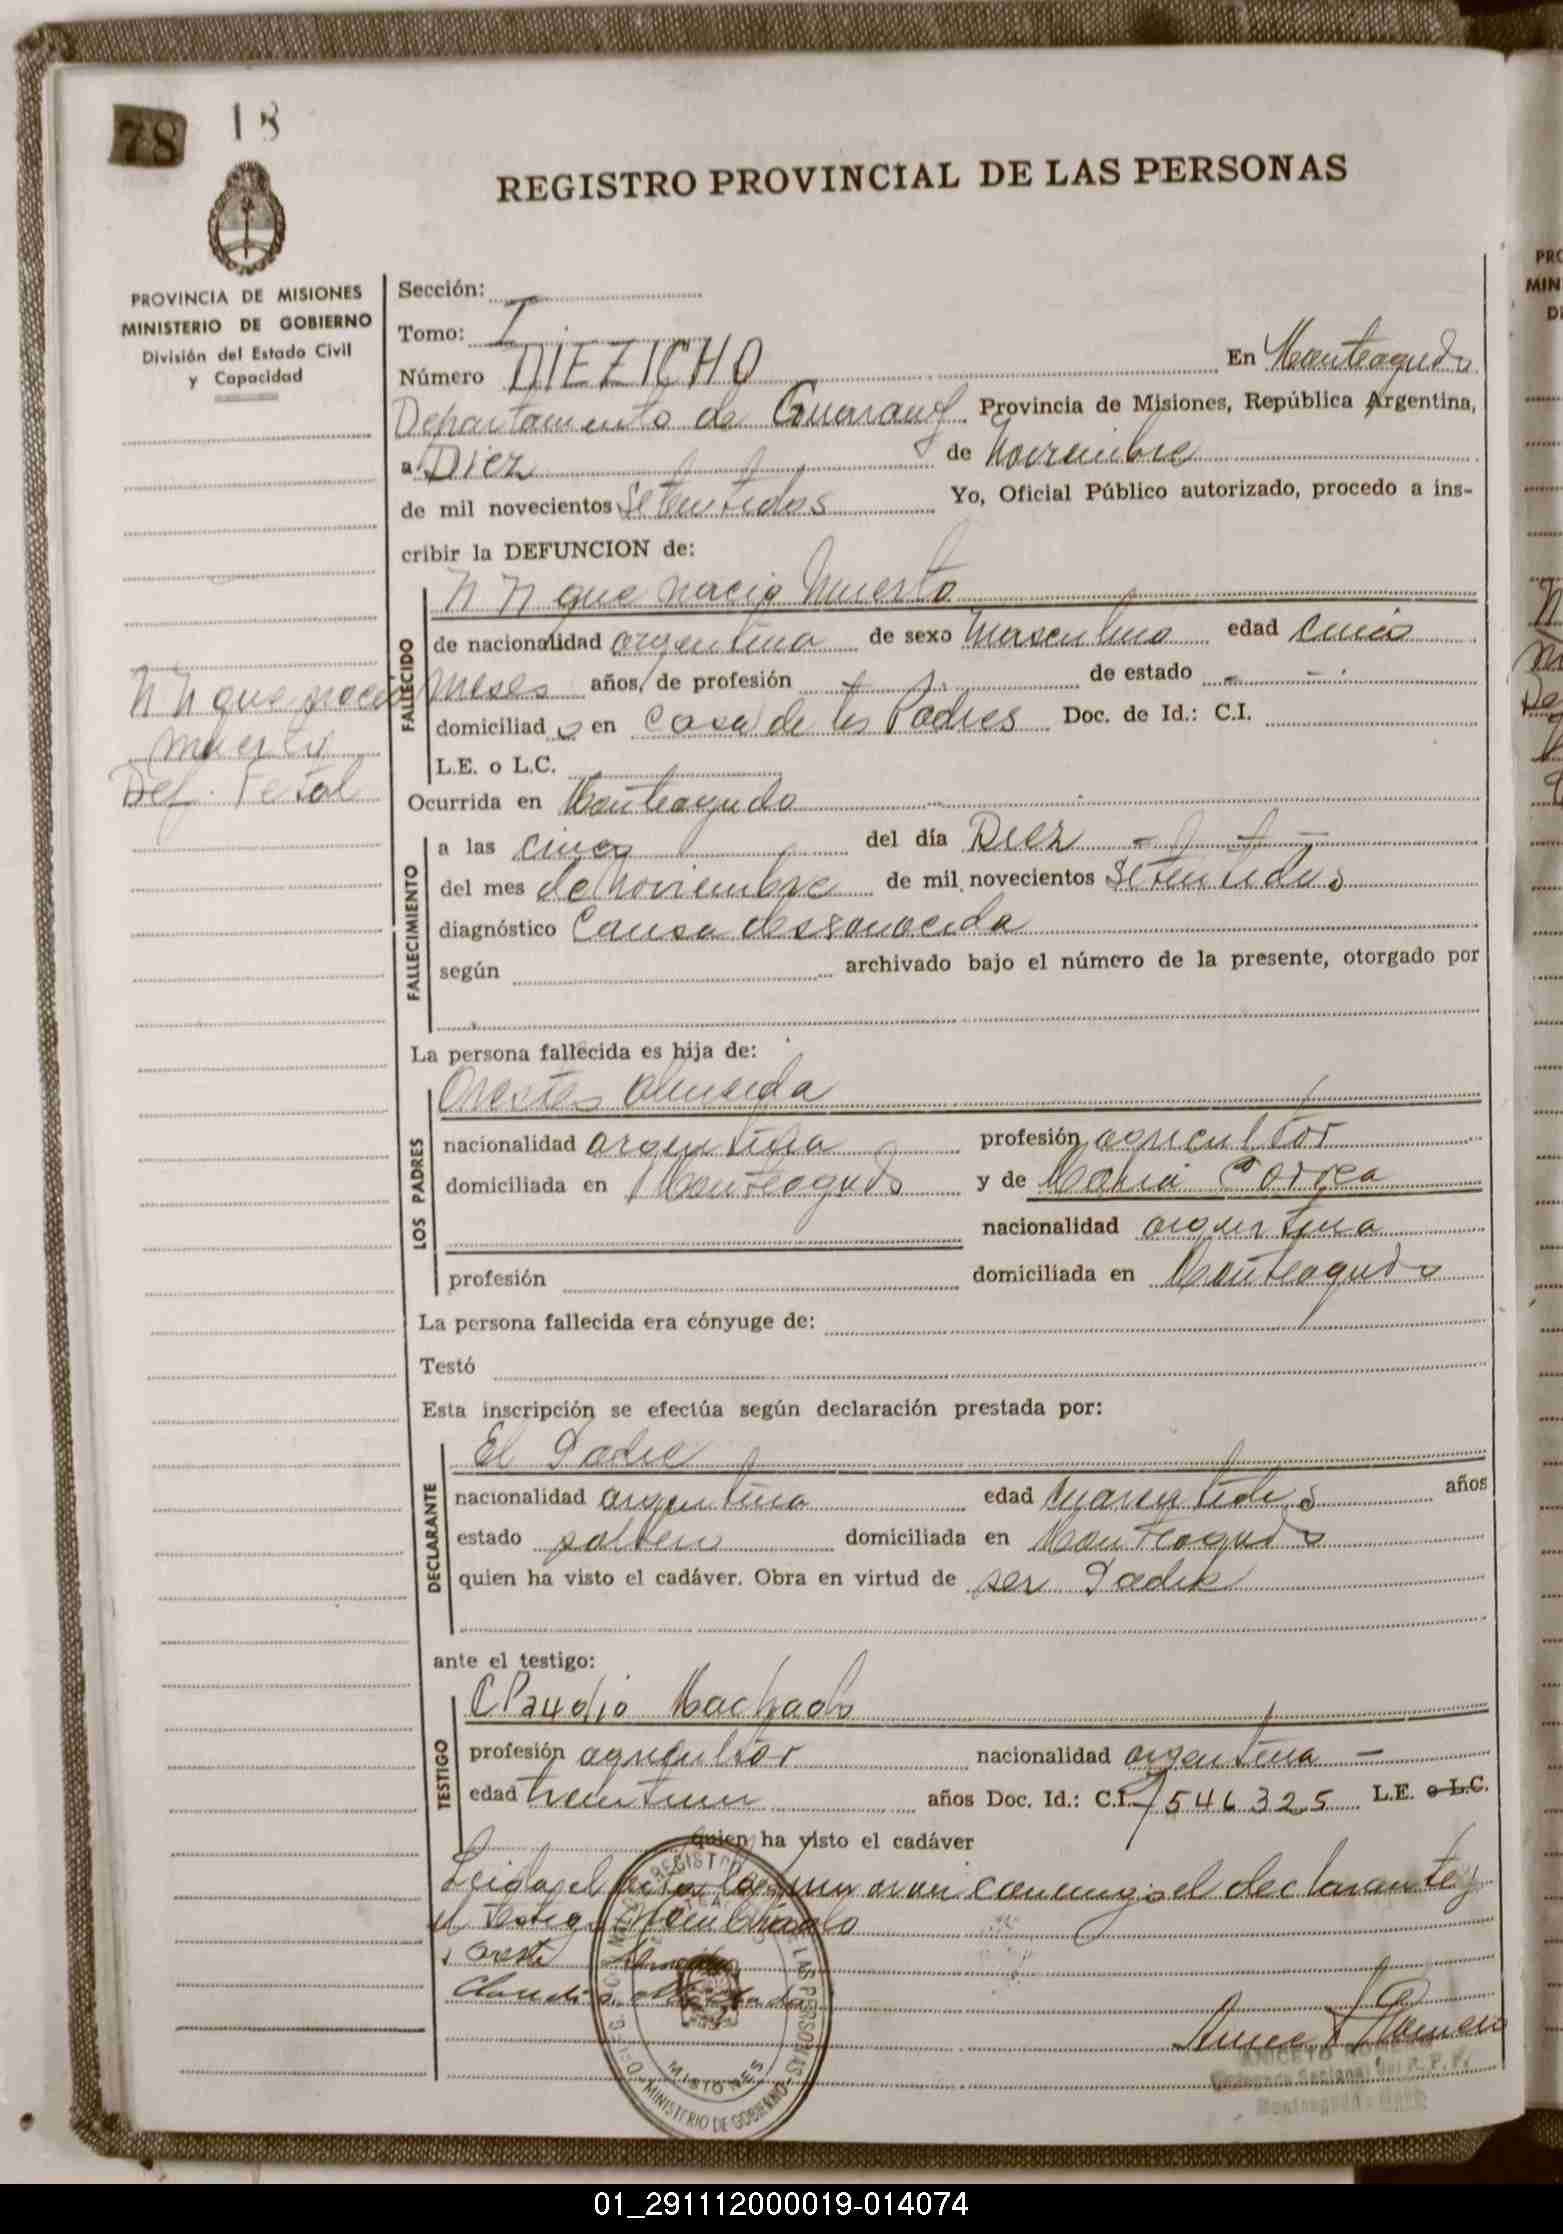 78 18
REGISTRO PROVINCIAL DE LAS PERSONAS
PROVINCIA DE MISIONES
MINISTERIO DE GOBIERNO
División del Estado Civil
y Capacidad
N N que nacio
muerto
Def. Fetal
Sección:
Tomo: I
Número DIEZICHO En Monteagudo
Departamento de Guarany Provincia de Misiones, República Argentina,
a Diez de Noviembre
de mil novecientos Setentidos Yo, Oficial Público autorizado, procedo a ins-
cribir la DEFUNCION de:
N N que nacio Muerto
FALLECIDO
de nacionalidad argentina de sexo Masculino edad Cinco
meses años, de profesión de estado
domiciliad o en Casa de los Padres Doc. de Id.: C.I.
L.E. o L.C.
Ocurrida en Monteagudo
FALLECIMIENTO
a las cinco del día Diez
del mes de Noviembre de mil novecientos Setentidos
diagnóstico Causa desconocida
según archivado bajo el número de la presente, otorgado por
La persona fallecida es hija de:
LOS PADRES
Orestes Almeida
nacionalidad argentina profesión agricultor
domiciliada en Monteagudo y de Maria Correa
nacionalidad argentina
profesión domiciliada en Monteagudo
La persona fallecida era cónyuge de:
Testó
Esta inscripción se efectúa según declaración prestada por:
DECLARANTE
El Padre
nacionalidad argentina edad cuarentidos años
estado soltero domiciliada en Monteagudo
quien ha visto el cadáver. Obra en virtud de ser Padre
ante el testigo:
TESTIGO
Claudio Machado
profesión agricultor nacionalidad argentina
edad treintiun años Doc. Id.: C.I. 7546325 L.E. o L.C.
quien ha visto el cadáver
Leida el acta la firman conmigo el declarante y
el testigo
Oreste Almeida
Claudio Machado
REGISTRO DE LAS PERSONAS
MISIONES
MINISTERIO DE GOBIERNO
ANICETO ROMERO
Delegado Seccional del R. P. P.
Monteagudo
01_291112000019-014074